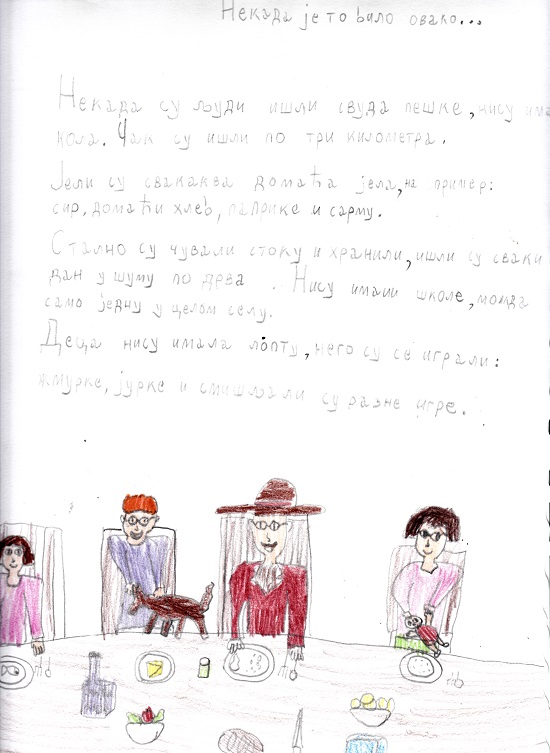 Некада је то било овако...
Некада су људи ишли свуда пешке, нису има
кола. Чак су ишли по три километра.
Јели су свакаква домаћа јела, на пример:
сир, домаћи хлеб, паприке и сарму.
Стално су чували стоку и хранили, ишли су сваки
дан у шуму по дрва . Нису имали школе, можда
само једну у целом селу.
Деца нису имала лопту, него су се играли:
жмурке, јурке и смишљали су разне игре.